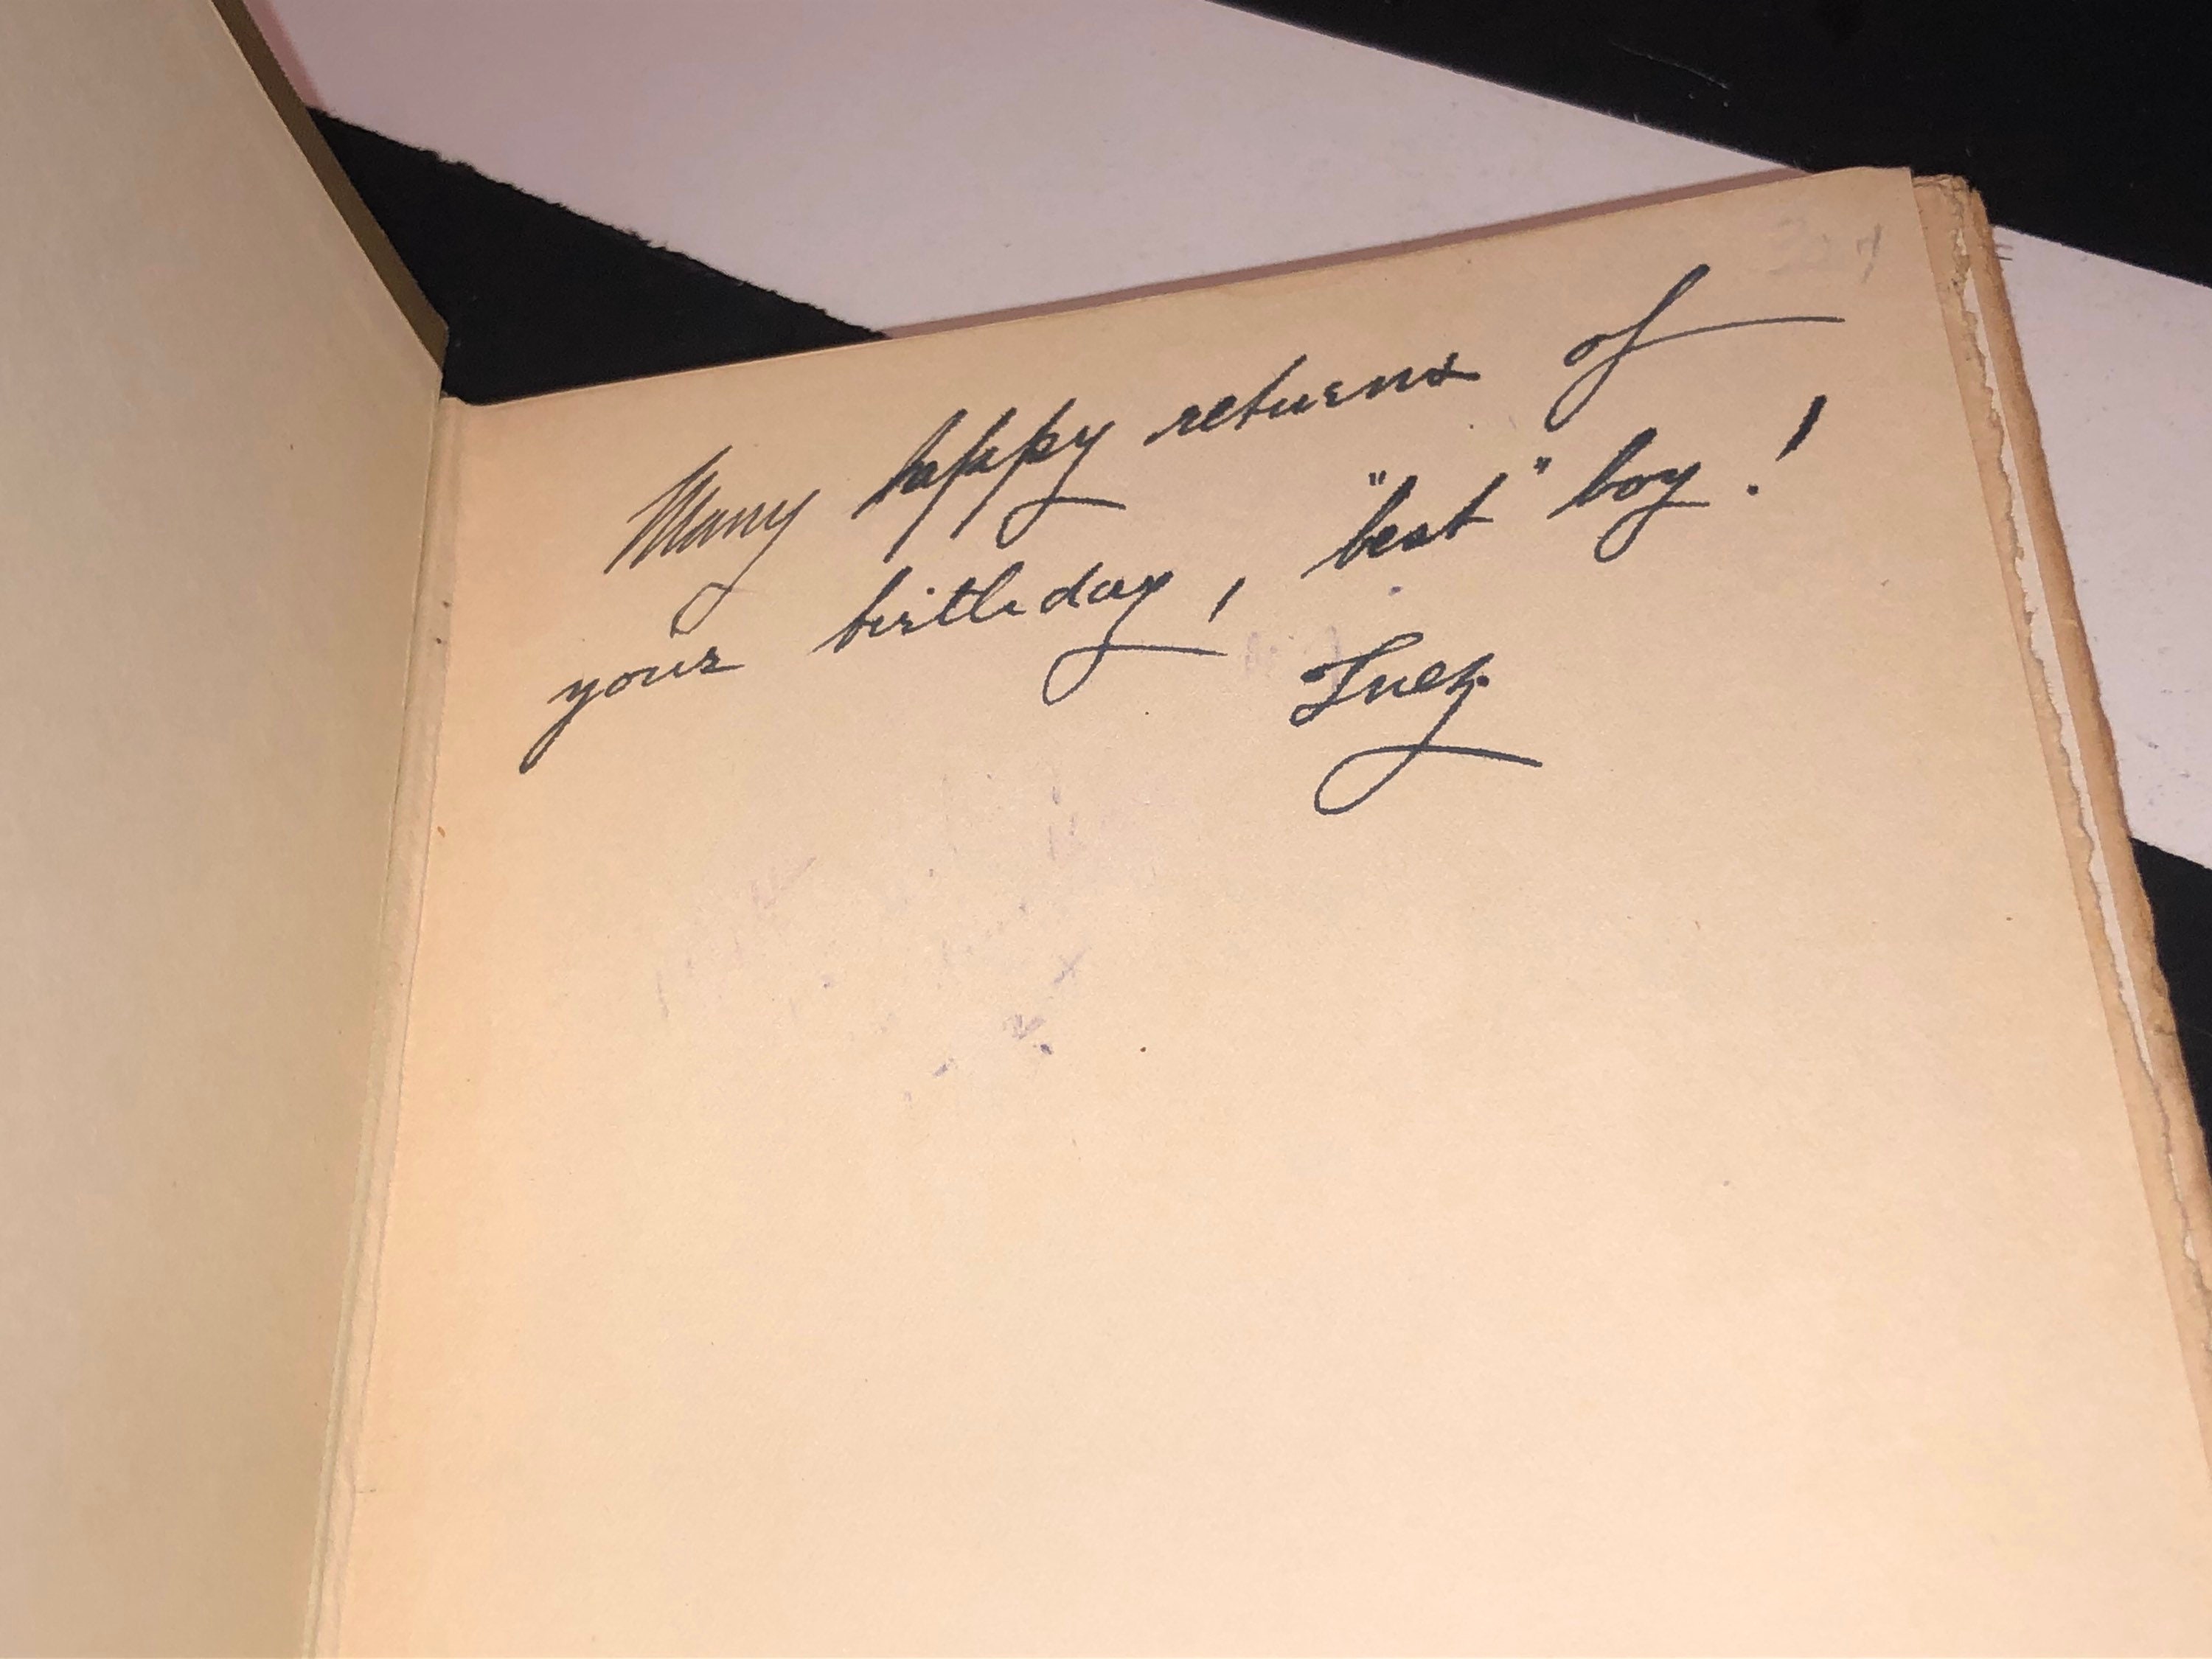 Many happy returns of
your birthday, "best" boy!
Inez